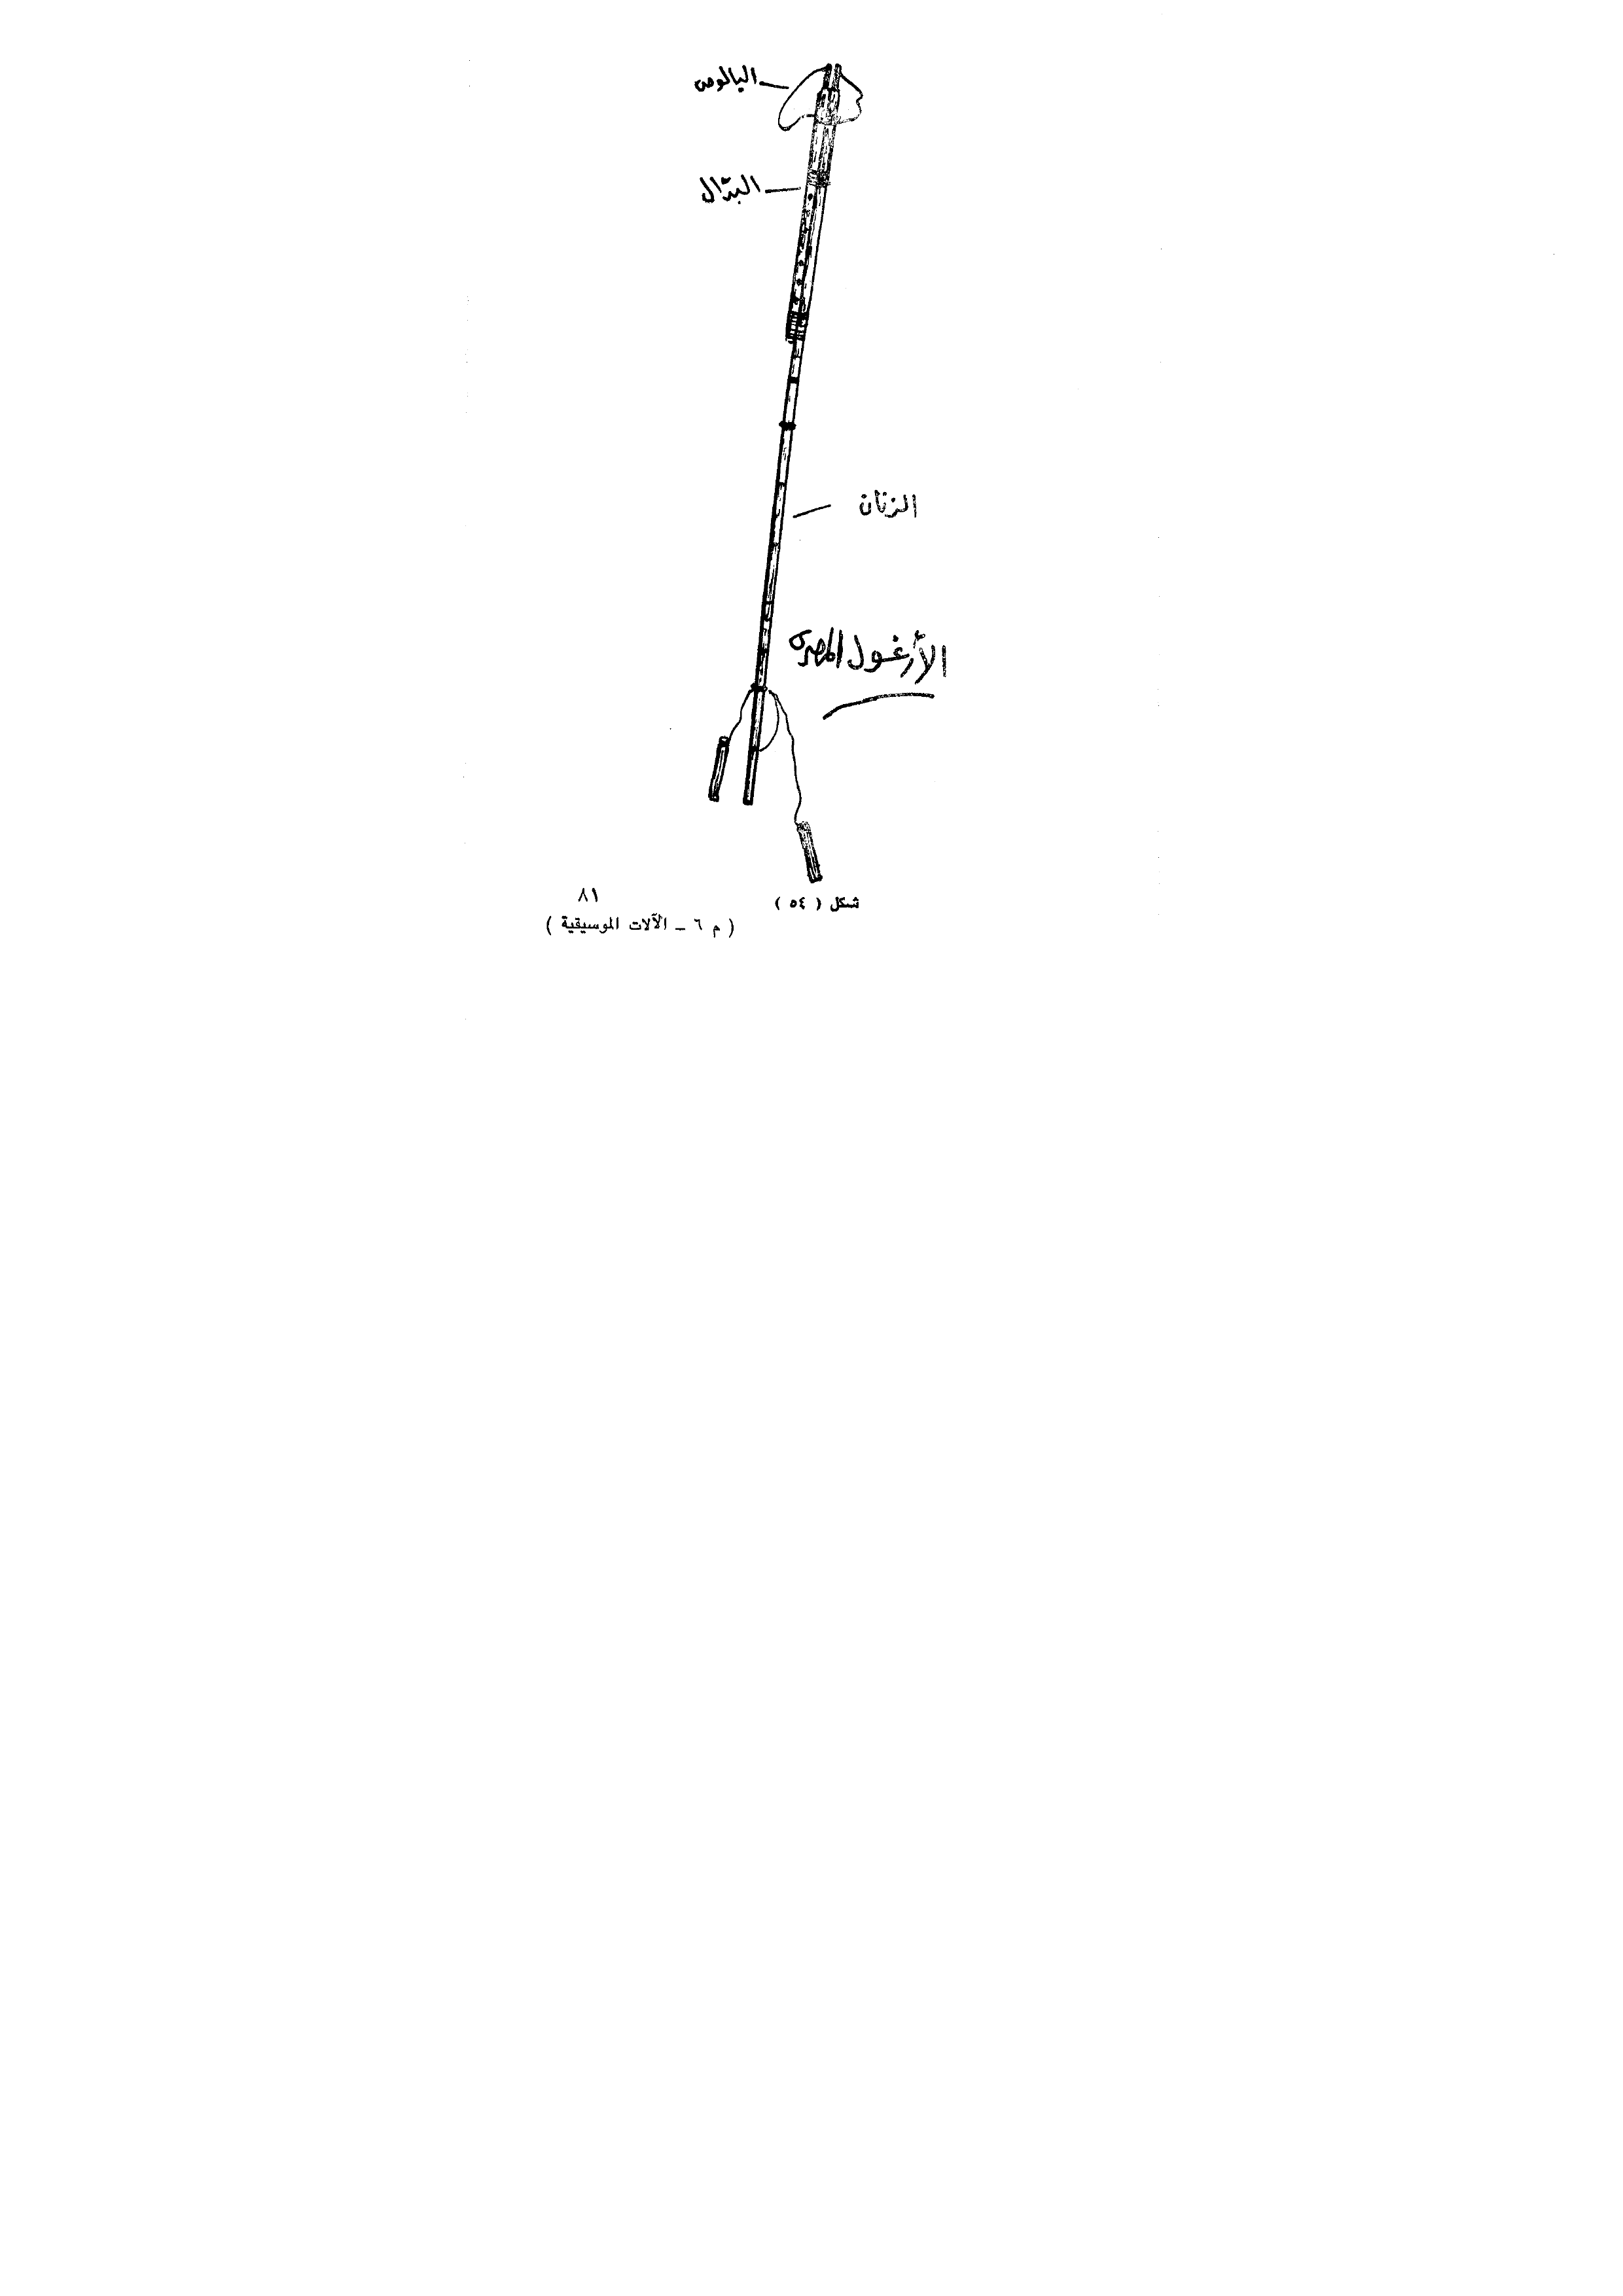 البالوص
البدّال
الزنان
الأرغول المصرى
شكل ( ٥٤ )
٨١
( م ٦ ـ الآلات الموسيقية )